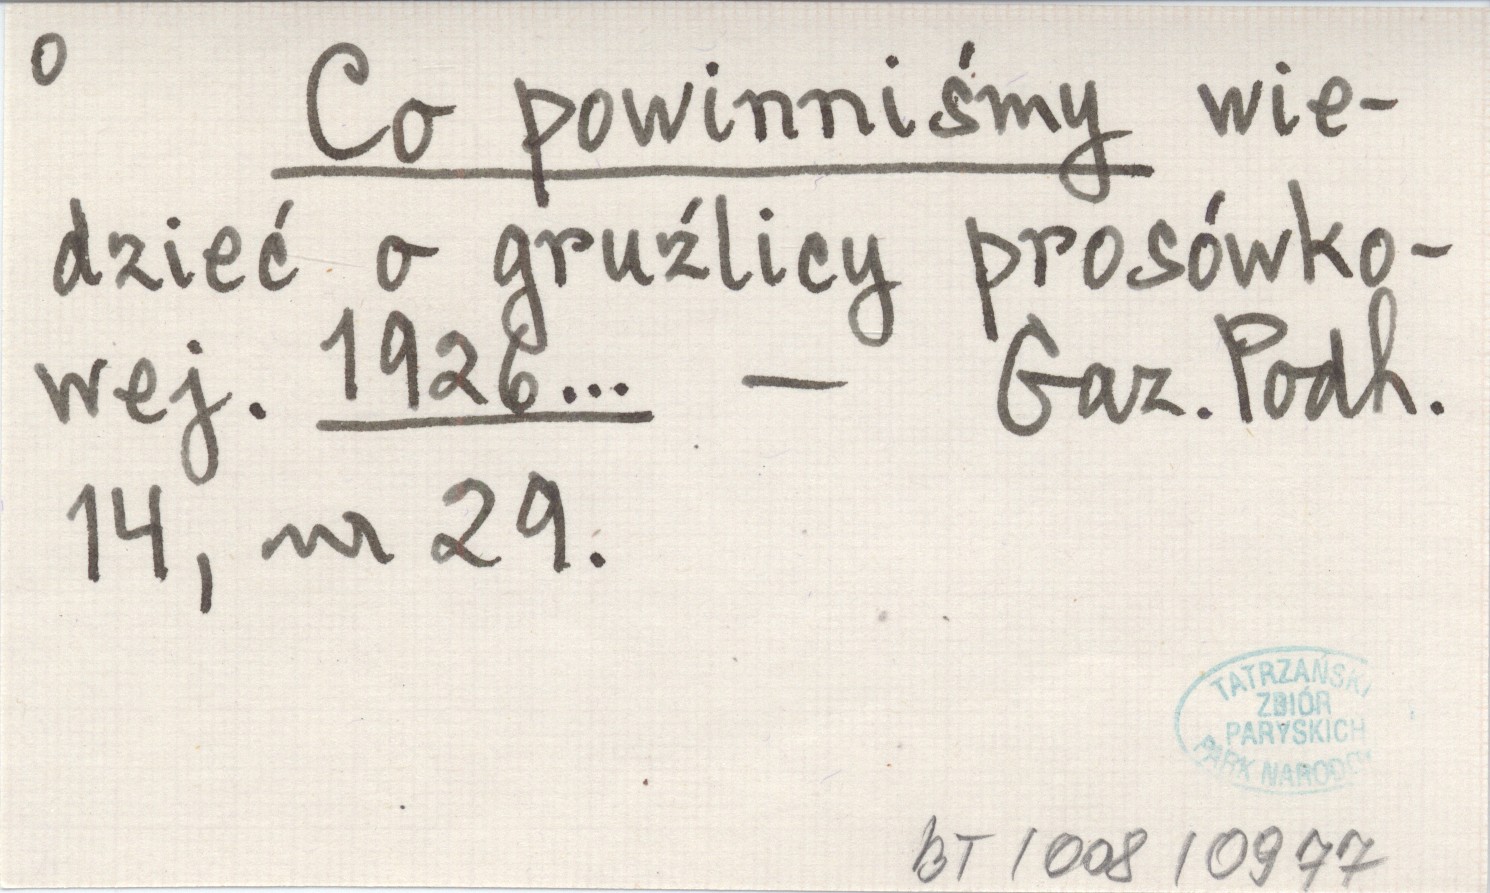 o
Co powinniśmy wie-
dzieć o gruźlicy prosówko-
wej. 1926... — Gaz. Podh.
14, nr 29.
TATRZAŃSKI
ZBIÓR
PARYSKICH
PARK NARODOWY
BT / 008 / 0977